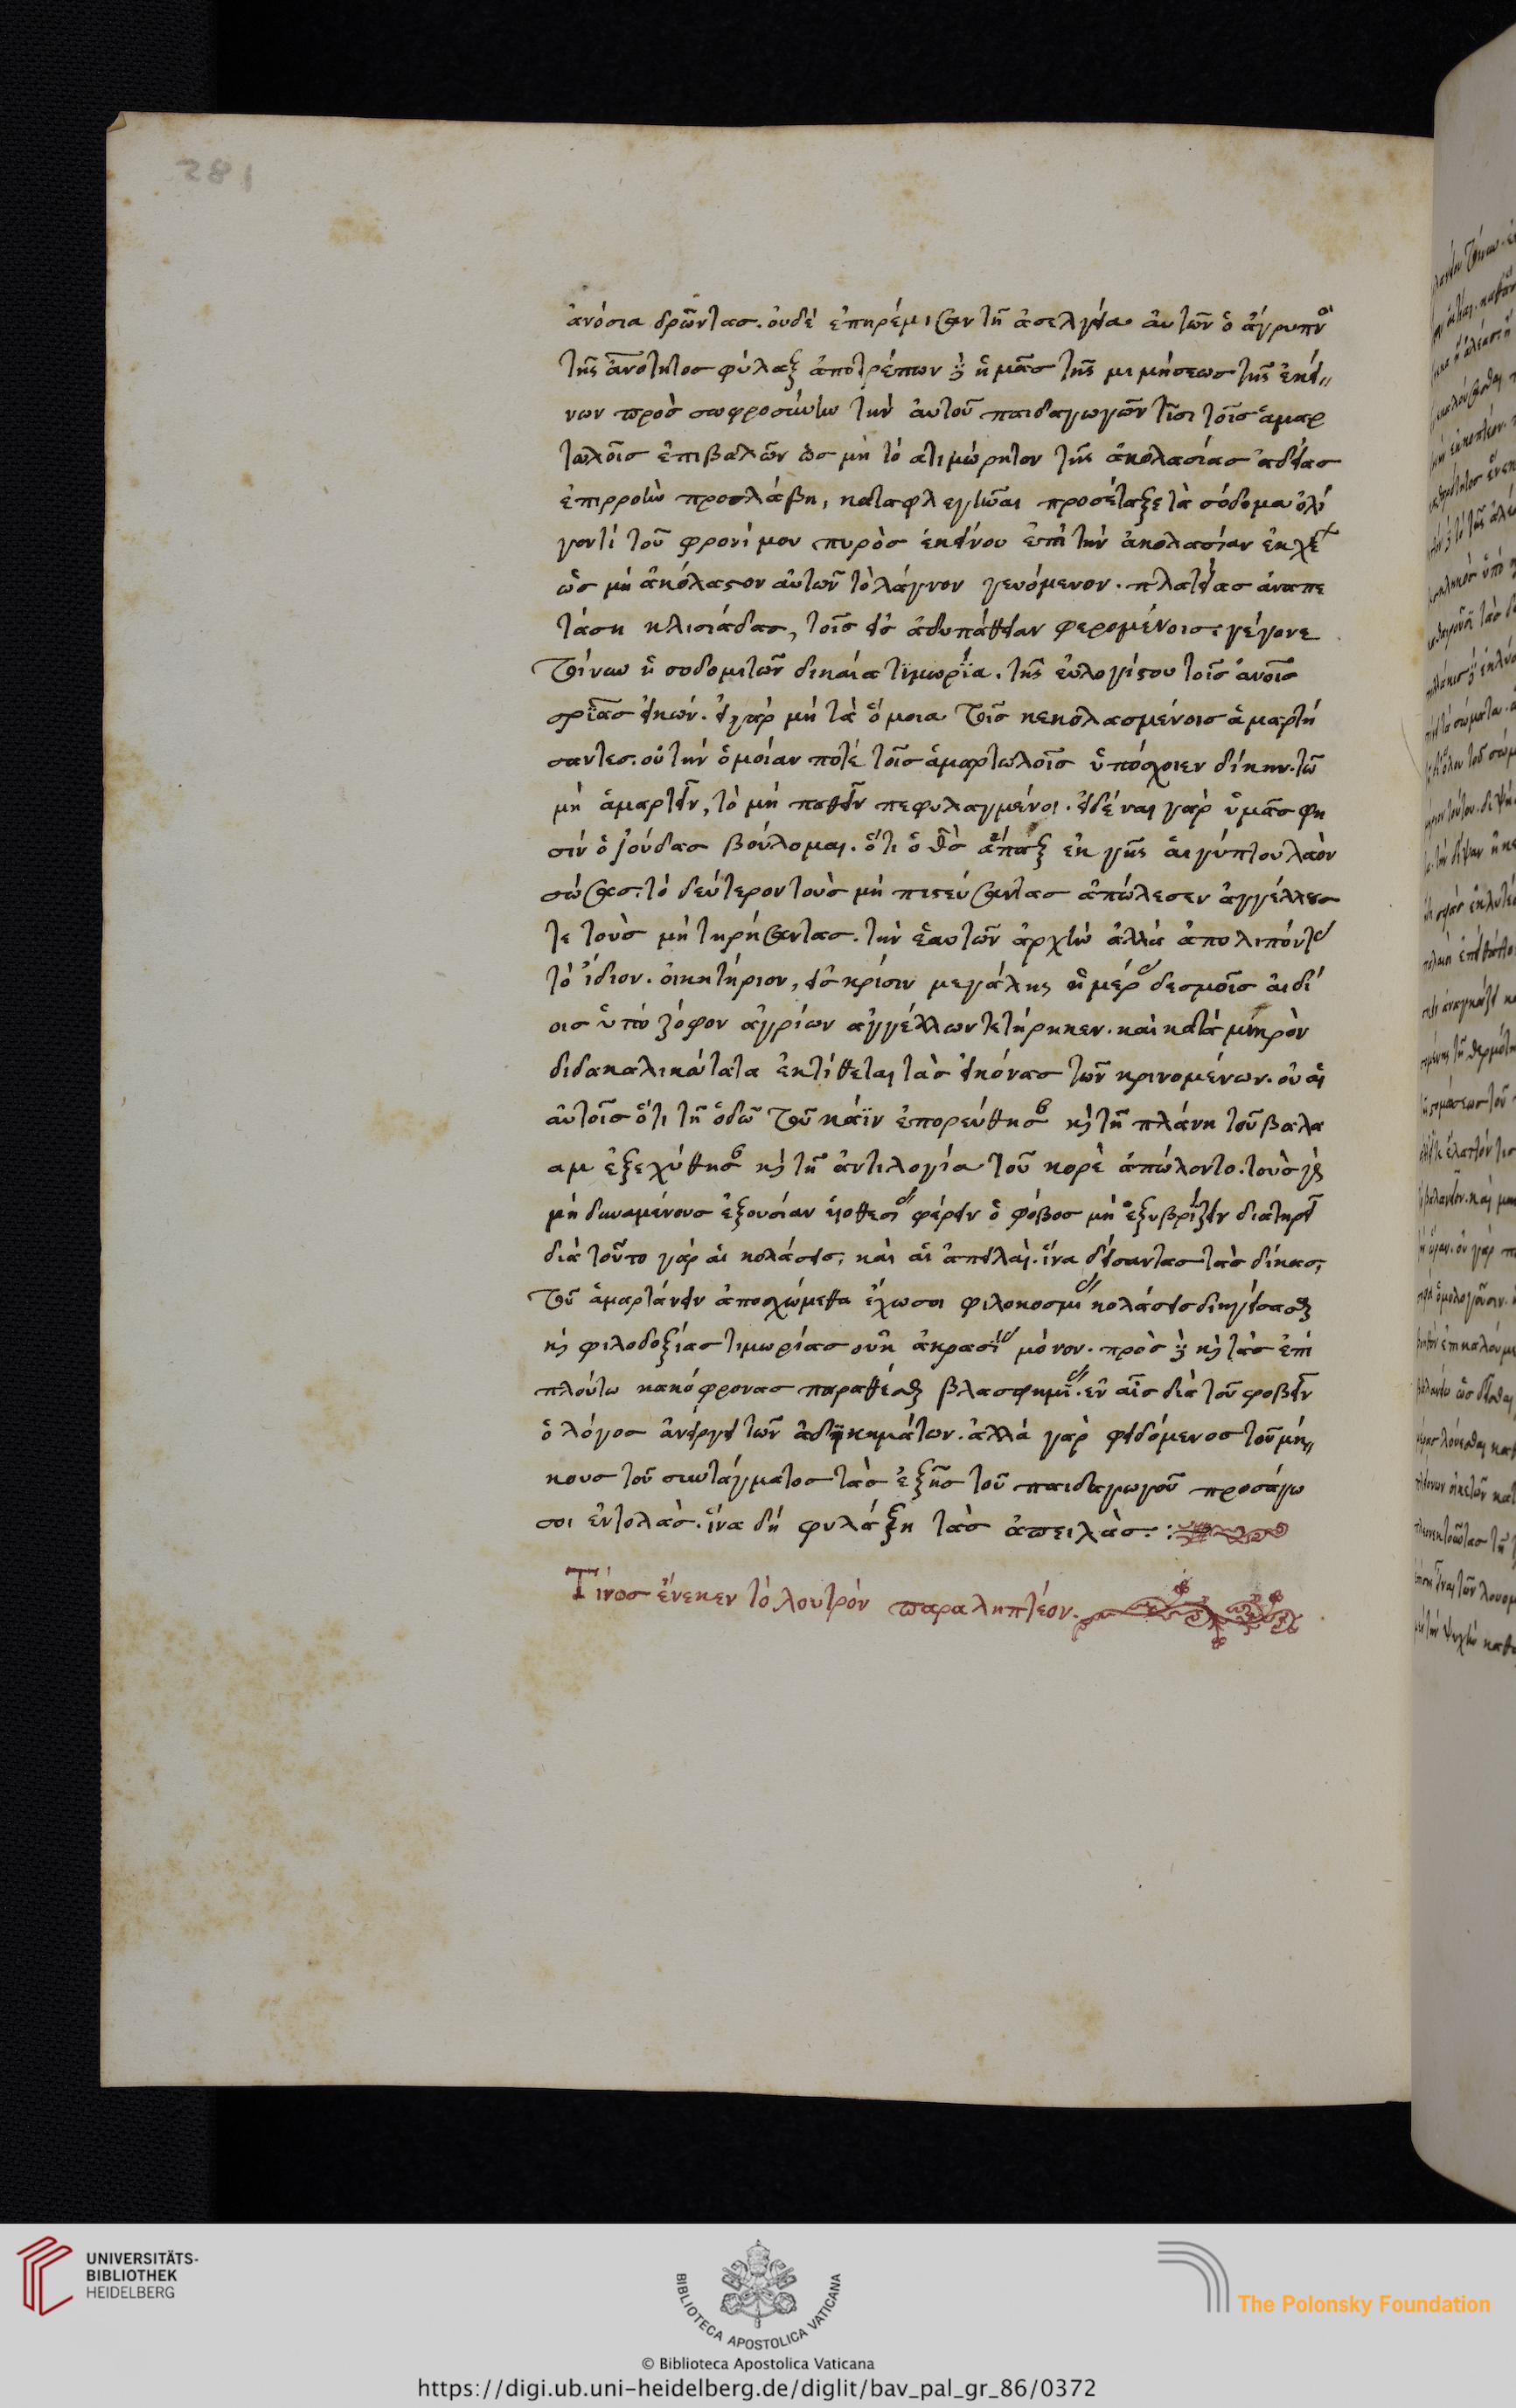 281
ἀνόσια δρῶντας. οὐδὲ ἐπηρέμισαν τῇ ἀσελγεία αὐτῶν ὁ ἄγρυπνος
τῆς ἀνότητος φύλαξ ἀποτρέπων δὲ ἡμᾶς τῆς μιμήσεως τῆς ἐκεί
νων πρὸς σωφροσύνην τὴν αὐτοῦ παιδαγωγῶν τισι τοῖς ἁμαρ
τωλοῖς ἐπιβαλῶν ὡς μὴ τὸ ατιμώρητον τῆς ἀκολασίας ἀδείας
ἐπιρροὴν προσλάβη, καταφλεγῆναι προσέταξε τὰ σόδομα ὀλί
γον τί τοῦ φρονίμου πυρὸς ἐκείνου ἐπὶ τὴν ἀκολασίαν ἐκχέας
ὡς μὴ ἀκόλαστον αὐτῶν τὸ λάγνον γενόμενον. πλατείας ἀναπε
τάση κλισιάδας, τοῖς εἰς ἀδυπάθειαν φερομένοις. γέγονε
τοίνυν ἡ σοδομιτῶν δικαία τϊμωρΐα. τῆς εὐλογίστου τοῖς ἀνοις
σρίας εἰκών. εἰ γὰρ μὴ τὰ ὅμοια τοῖς κεκολασμένοις ἁμαρτή
σαντες. οὐ τὴν ὁμοίαν ποτὲ τοῖς ἁμαρτωλοῖς ὑπόσχοιεν δίκην. τῶ
μὴ ἁμαρτεῖν, τὸ μὴ παθεῖν πεφυλαγμένοι. εἰδέναι γὰρ ὑμᾶς φη
σὶν ὁ ἰούδας βούλομαι. ὅτι ὁ θς ἅπαξ ἐκ γῆς αἰγύπτου λαὸν
σώσας. τὸ δεύτερον τοὺς μὴ πιστεύσαντας ἀπώλεσεν ἀγγέλλους
τε τοὺς μὴ τηρήσαντας. τὴν ἑαυτῶν ἀρχὴν ἀλλὰ ἀπολιπόντας
τὸ ἴδιον. οἰκητήριον, εἰς κρίσιν μεγάλης ἡμέρας δεσμοῖς αἰδί
οις ὑπὸ ζόφον ἀγρίων ἀγγέλλων τετήρηκεν. καὶ κατὰ μικρὸν
διδακαλικώτατα ἐκτίθεται τὰς εἰκόνας τῶν κρινομένων. οὐαὶ
αὐτοῖς ὅτι τῇ ὁδῶ τοῦ κάϊν ἐπορεύθησαν κὶ τῇ πλάνη τοῦ βαλα
αμ ἐξεχύθησαν κὶ τῇ ἀντιλογία τοῦ κορὲ ἀπώλοντο. τοὺς γὰρ
μὴ δυναμένους ἐξουσίαν υἱοθεσίας φέρειν ὁ φόβος μὴ ἐξυβρίζειν διατηρεῖ
διὰ τοῦτο γὰρ αἱ κολάσεις, καὶ αἱ ἀπειλαὶ. ἵνα δείσαντας τὰς δίκας,
τοῦ ἁμαρτάνειν ἀποσχώμεθα ἐχωσοι φιλοκοσμίας κολάσεις διηγείσασθαι
κὶ φιλοδοξίας τιμωρίας οὐκ ἀκρασίας μόνον. πρὸς δὲ κὶ τὰς ἐπὶ
πλούτω κακόφρονας παραθέσθαι βλασφημίας. ἐν αἷς διὰ τοῦ φοβεῖν
ὁ λόγος ἀνείργει τῶν ἀδικημάτων. ἀλλὰ γὰρ φειδόμενος τοῦ μή
κους τοῦ συντάγματος τὰς ἑξῆς τοῦ παιδαγωγοῦ προσάγω
σοι ἐντολὰς. ἵνα δὴ φυλάξη τὰς ἀπειλὰς.
Τίνος ἕνεκεν τὸ λουτρὸν παραληπτέον.
UNIVERSITÄTS-
BIBLIOTHEK
HEIDELBERG
BIBLIOTECA APOSTOLICA VATICANA
The Polonsky Foundation
© Biblioteca Apostolica Vaticana
https://digi.ub.uni-heidelberg.de/diglit/bav_pal_gr_86/0372